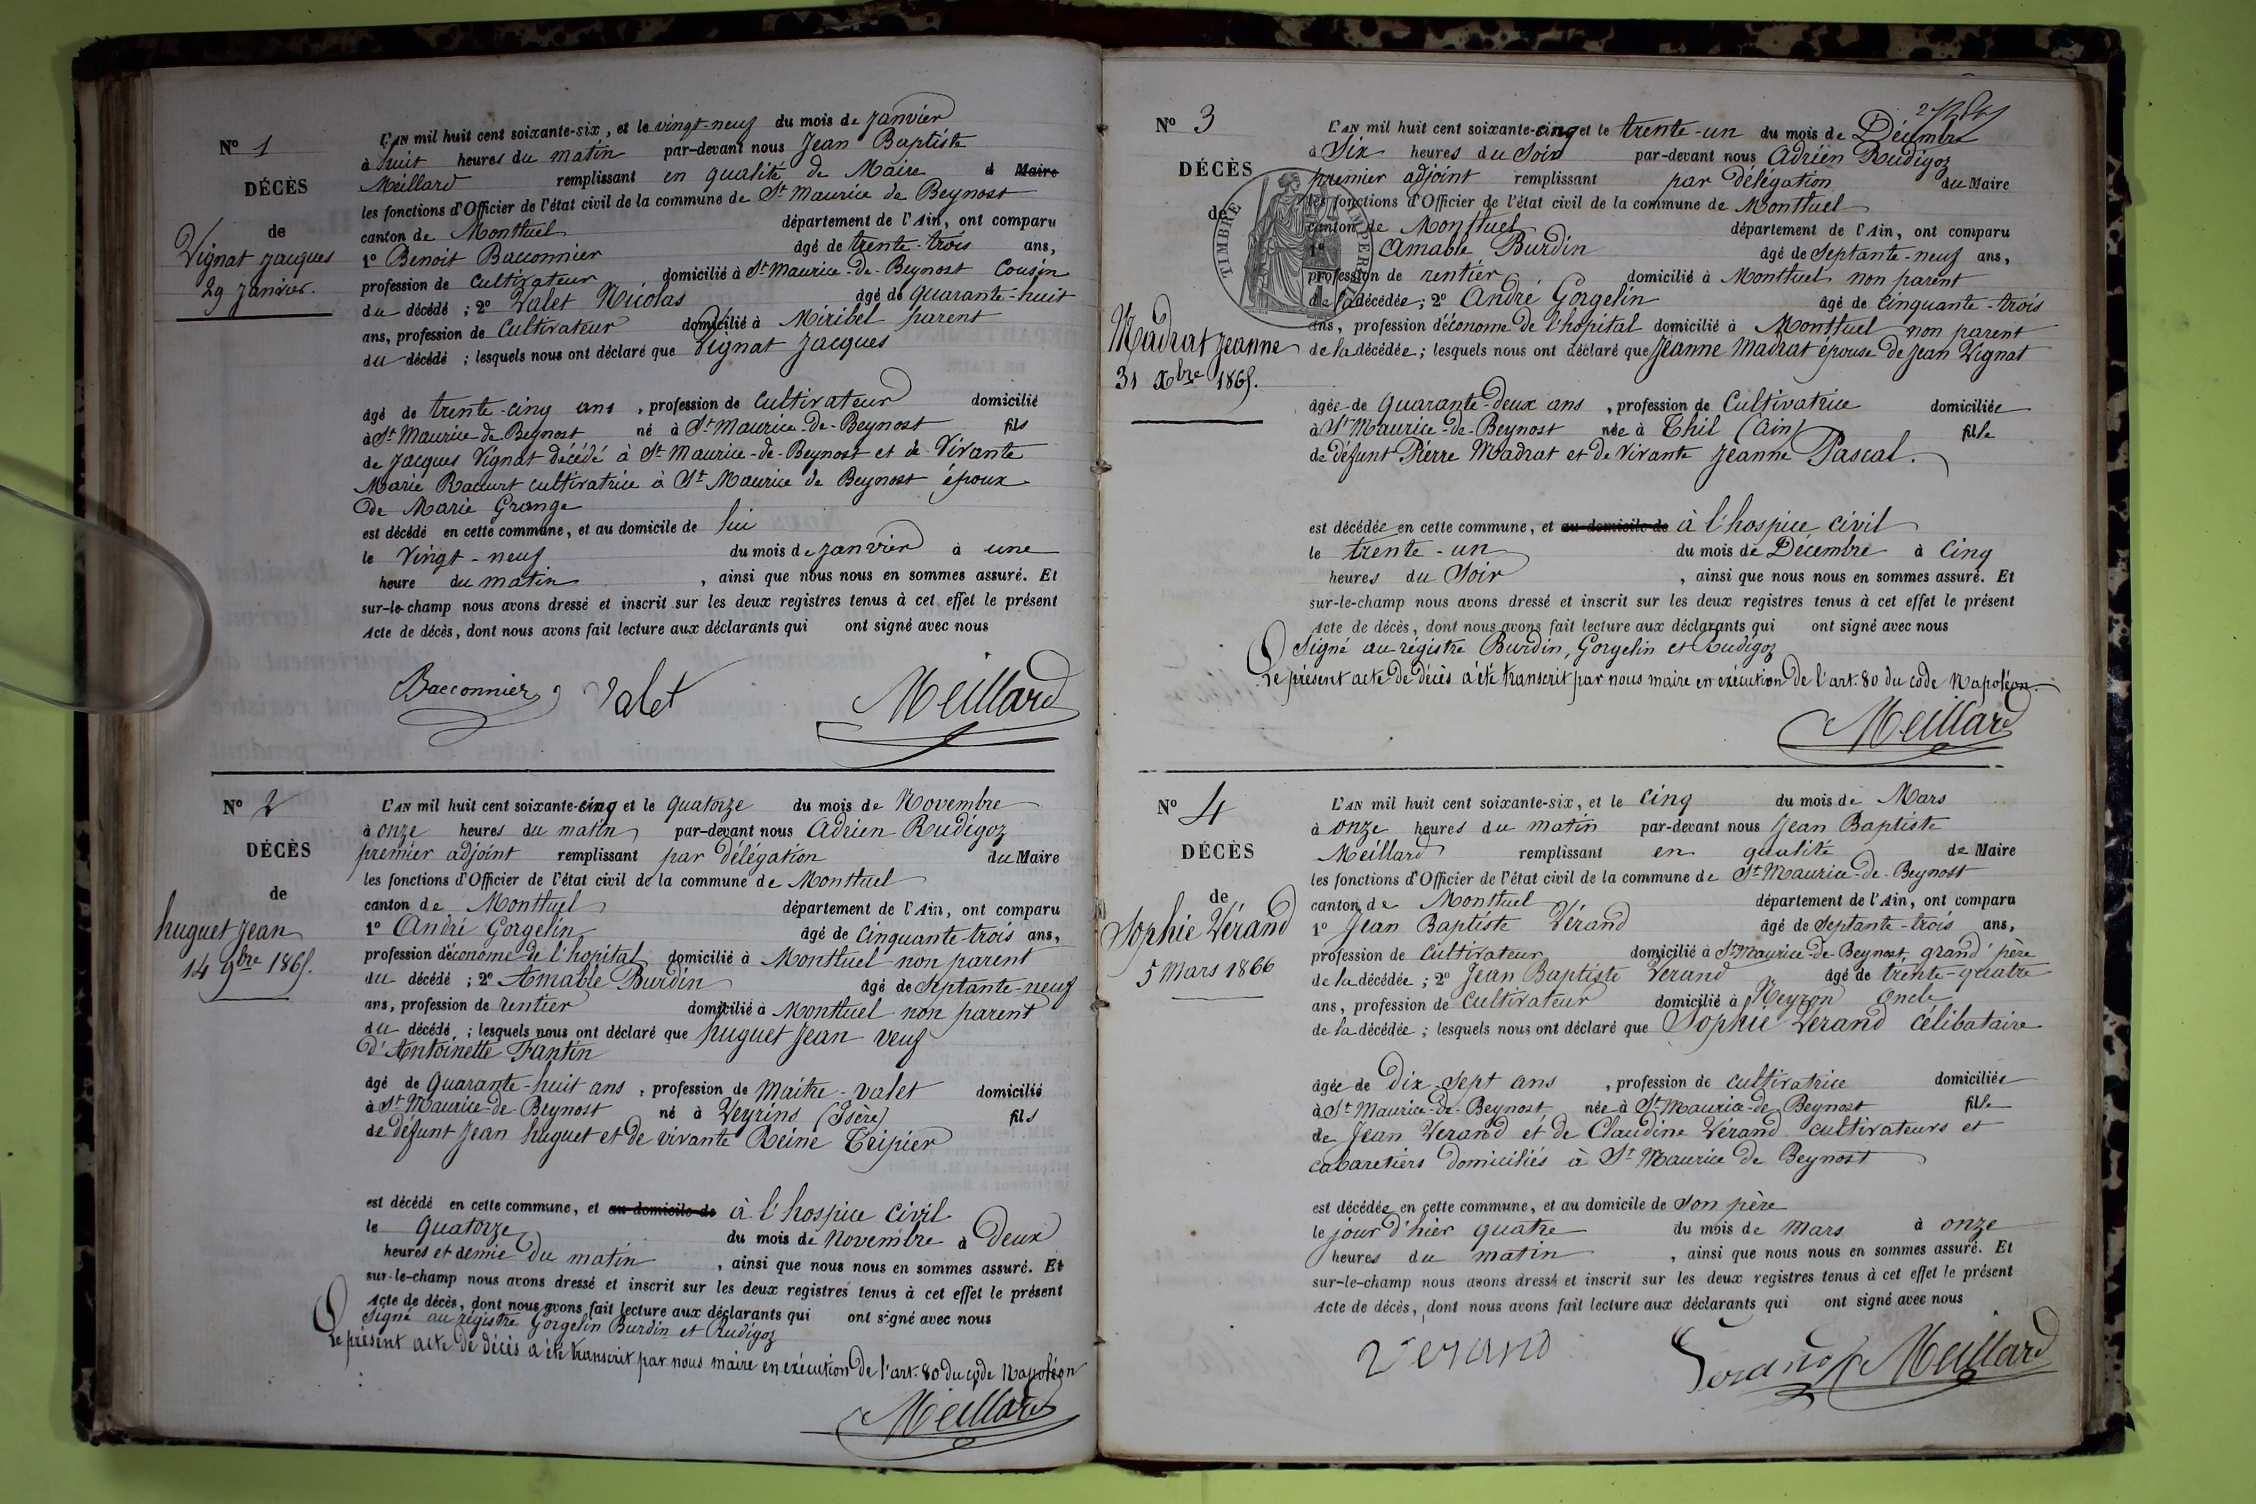 N° 1
DÉCÈS
de
Vignat Jacques
29 Janvier.
L'AN mil huit cent soixante-six, et le vingt-neuf du mois de Janvier
à huit heures du matin par-devant nous Jean Baptiste
Meillard remplissant en qualité de Maire d Maire
les fonctions d'Officier de l'état civil de la commune de St Maurice de Beynost
canton de Montluel département de l'Ain, ont comparu
1° Benoit Bacconnier âgé de trente-trois ans,
profession de Cultivateur domicilié à St Maurice-de-Beynost Cousin
du décédé ; 2° Valet Nicolas âgé de quarante-huit
ans, profession de Cultivateur domicilié à Miribel parent
du décédé ; lesquels nous ont déclaré que Vignat Jacques
âgé de trente-cinq ans , profession de Cultivateur domicilié
à St Maurice de Beynost né à St Maurice-de-Beynost fils
de Jacques Vignat décédé à St Maurice-de-Beynost et de Vivante
Marie Racurt cultivatrice à St Maurice de Beynost époux
de Marie Grange
est décédé en cette commune, et au domicile de lui
le Vingt-neuf du mois de Janvier à une
heure du matin , ainsi que nous nous en sommes assuré. Et
sur-le-champ nous avons dressé et inscrit sur les deux registres tenus à cet effet le présent
Acte de décès, dont nous avons fait lecture aux déclarants qui ont signé avec nous
Bacconnier Valet Meillard
N° 2
DÉCÈS
de
huguet Jean
14 9bre 1865.
L'AN mil huit cent soixante-cinq et le quatorze du mois de Novembre
à onze heures du matin par-devant nous Adrien Rudigoz
premier adjoint remplissant par délégation du Maire
les fonctions d'Officier de l'état civil de la commune de Montluel
canton de Montluel département de l'Ain, ont comparu
1° André Gorgelin âgé de Cinquante trois ans,
profession d'économe de l'hopital domicilié à Montluel non parent
du décédé ; 2° Amable Burdin âgé de Septante-neuf
ans, profession de rentier domicilié à Montluel non parent
du décédé ; lesquels nous ont déclaré que huguet Jean veuf
d'Antoinette Fantin
âgé de Quarante-huit ans , profession de Maître-valet domicilié
à St Maurice-de-Beynost né à Veyrins (Isère) fils
de défunt Jean huguet et de vivante Reine Tripier
est décédé en cette commune, et au domicile de à l'hospice civil
le quatorze du mois de Novembre à Deux
heures et demie du matin , ainsi que nous nous en sommes assuré. Et
sur-le-champ nous avons dressé et inscrit sur les deux registres tenus à cet effet le présent
Acte de décès, dont nous avons fait lecture aux déclarants qui ont signé avec nous
Signé au régistre Gorgelin Burdin et Rudigoz
Le présent acte de décès a été transcrit par nous maire en exécution de l'art. 80 du code Napoléon
Meillard
N° 3
DÉCÈS
de
Madrat Jeanne
31 Xbre 1865.
TIMBRE IMPERIAL
L'AN mil huit cent soixante-cinq et le trente-un du mois de Décembre
à Six heures du Soir par-devant nous Adrien Rudigoz
premier adjoint remplissant par délégation du Maire
les fonctions d'Officier de l'état civil de la commune de Montluel
canton de Montluel département de l'Ain, ont comparu
1° Amable Burdin âgé de Septante-neuf ans,
profession de rentier domicilié à Montluel non parent
de la décédée ; 2° André Gorgelin âgé de Cinquante-trois
ans, profession d'économe de l'hopital domicilié à Montluel non parent
de la décédée ; lesquels nous ont déclaré que Jeanne Madrat épouse de Jean Vignat
âgée de Quarante-deux ans , profession de Cultivatrice domiciliée
à St Maurice-de-Beynost née à Thil (Ain) fille
de défunt Pierre Madrat et de Vivante Jeanne Pascal.
est décédée en cette commune, et au domicile de à l'hospice civil
le trente-un du mois de Décembre à Cinq
heures du Soir , ainsi que nous nous en sommes assuré. Et
sur-le-champ nous avons dressé et inscrit sur les deux registres tenus à cet effet le présent
Acte de décès, dont nous avons fait lecture aux déclarants qui ont signé avec nous
Signé au régistre Burdin, Gorgelin et Rudigoz
Le présent acte de décès a été transcrit par nous maire en exécution de l'art. 80 du code Napoléon.
Meillard
N° 4
DÉCÈS
de
Sophie Vérand
5 Mars 1866
L'AN mil huit cent soixante-six, et le cinq du mois de Mars
à onze heures du matin par-devant nous Jean Baptiste
Meillard remplissant en qualité de Maire
les fonctions d'Officier de l'état civil de la commune de St Maurice-de-Beynost
canton de Montluel département de l'Ain, ont comparu
1° Jean Baptiste Vérand âgé de Septante-trois ans,
profession de Cultivateur domicilié à St Maurice-de-Beynost, grand'père
de la décédée ; 2° Jean Baptiste Verand âgé de trente-quatre
ans, profession de Cultivateur domicilié à Neyron Oncle
de la décédée ; lesquels nous ont déclaré que Sophie Verand célibataire
âgée de Dix-Sept ans , profession de cultivatrice domiciliée
à St Maurice-de-Beynost née à St Maurice-de-Beynost fille
de Jean Verand et de Claudine Vérand cultivateurs et
cabaretiers domiciliés à St Maurice de Beynost
est décédée en cette commune, et au domicile de son père
le jour d'hier quatre du mois de Mars à onze
heures du matin , ainsi que nous nous en sommes assuré. Et
sur-le-champ nous avons dressé et inscrit sur les deux registres tenus à cet effet le présent
Acte de décès, dont nous avons fait lecture aux déclarants qui ont signé avec nous
Verand Meillard